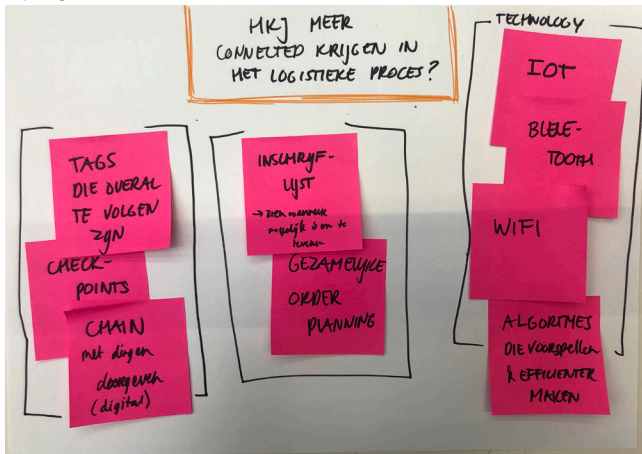 HKJ MEER
CONNECTED KRIJGEN IN
HET LOGISTIEKE PROCES?
TAGS
DIE OVERAL
TE VOLGEN
ZIJN
CHECK-
POINTS
CHAIN
met dingen
doorgeven
(digital)
INSCHRIJF-
LIJST
→ zien wanneer
mogelijk is om te
leveren
GEZAMELIJKE
ORDER
PLANNING
TECHNOLOGY
IOT
BLEUE-
TOOTH
WIFI
ALGORITMES
DIE VOORSPELLEN
& EFFICIENTER
MAKEN